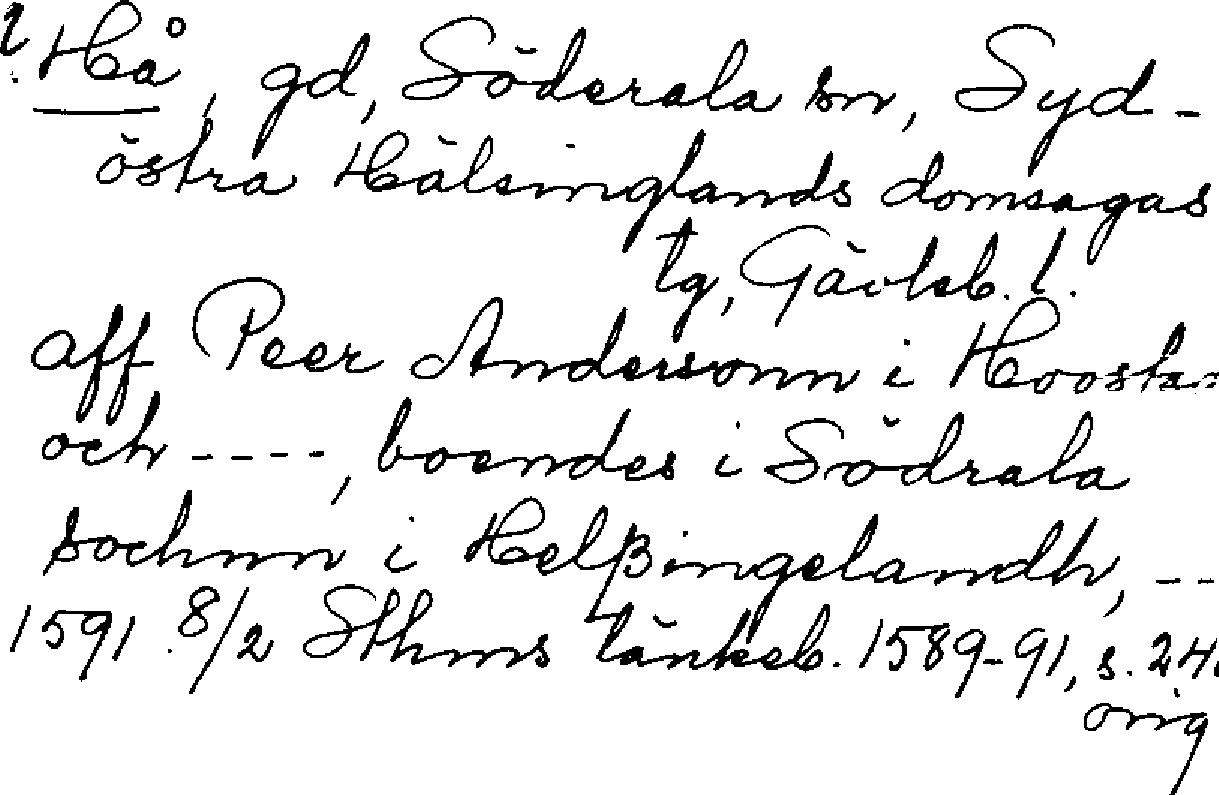 ? Hå, gd, Söderala sn, Syd-
östra Hälsinglands domsagas
tg, Gävleb. l.
aff Peer Andersonn i Hoosta
och ----, boendes i Södrala
sochnn i Helßingelandh, --
1591 8/2 Sthms tänkeb. 1589-91, s. 24
orig